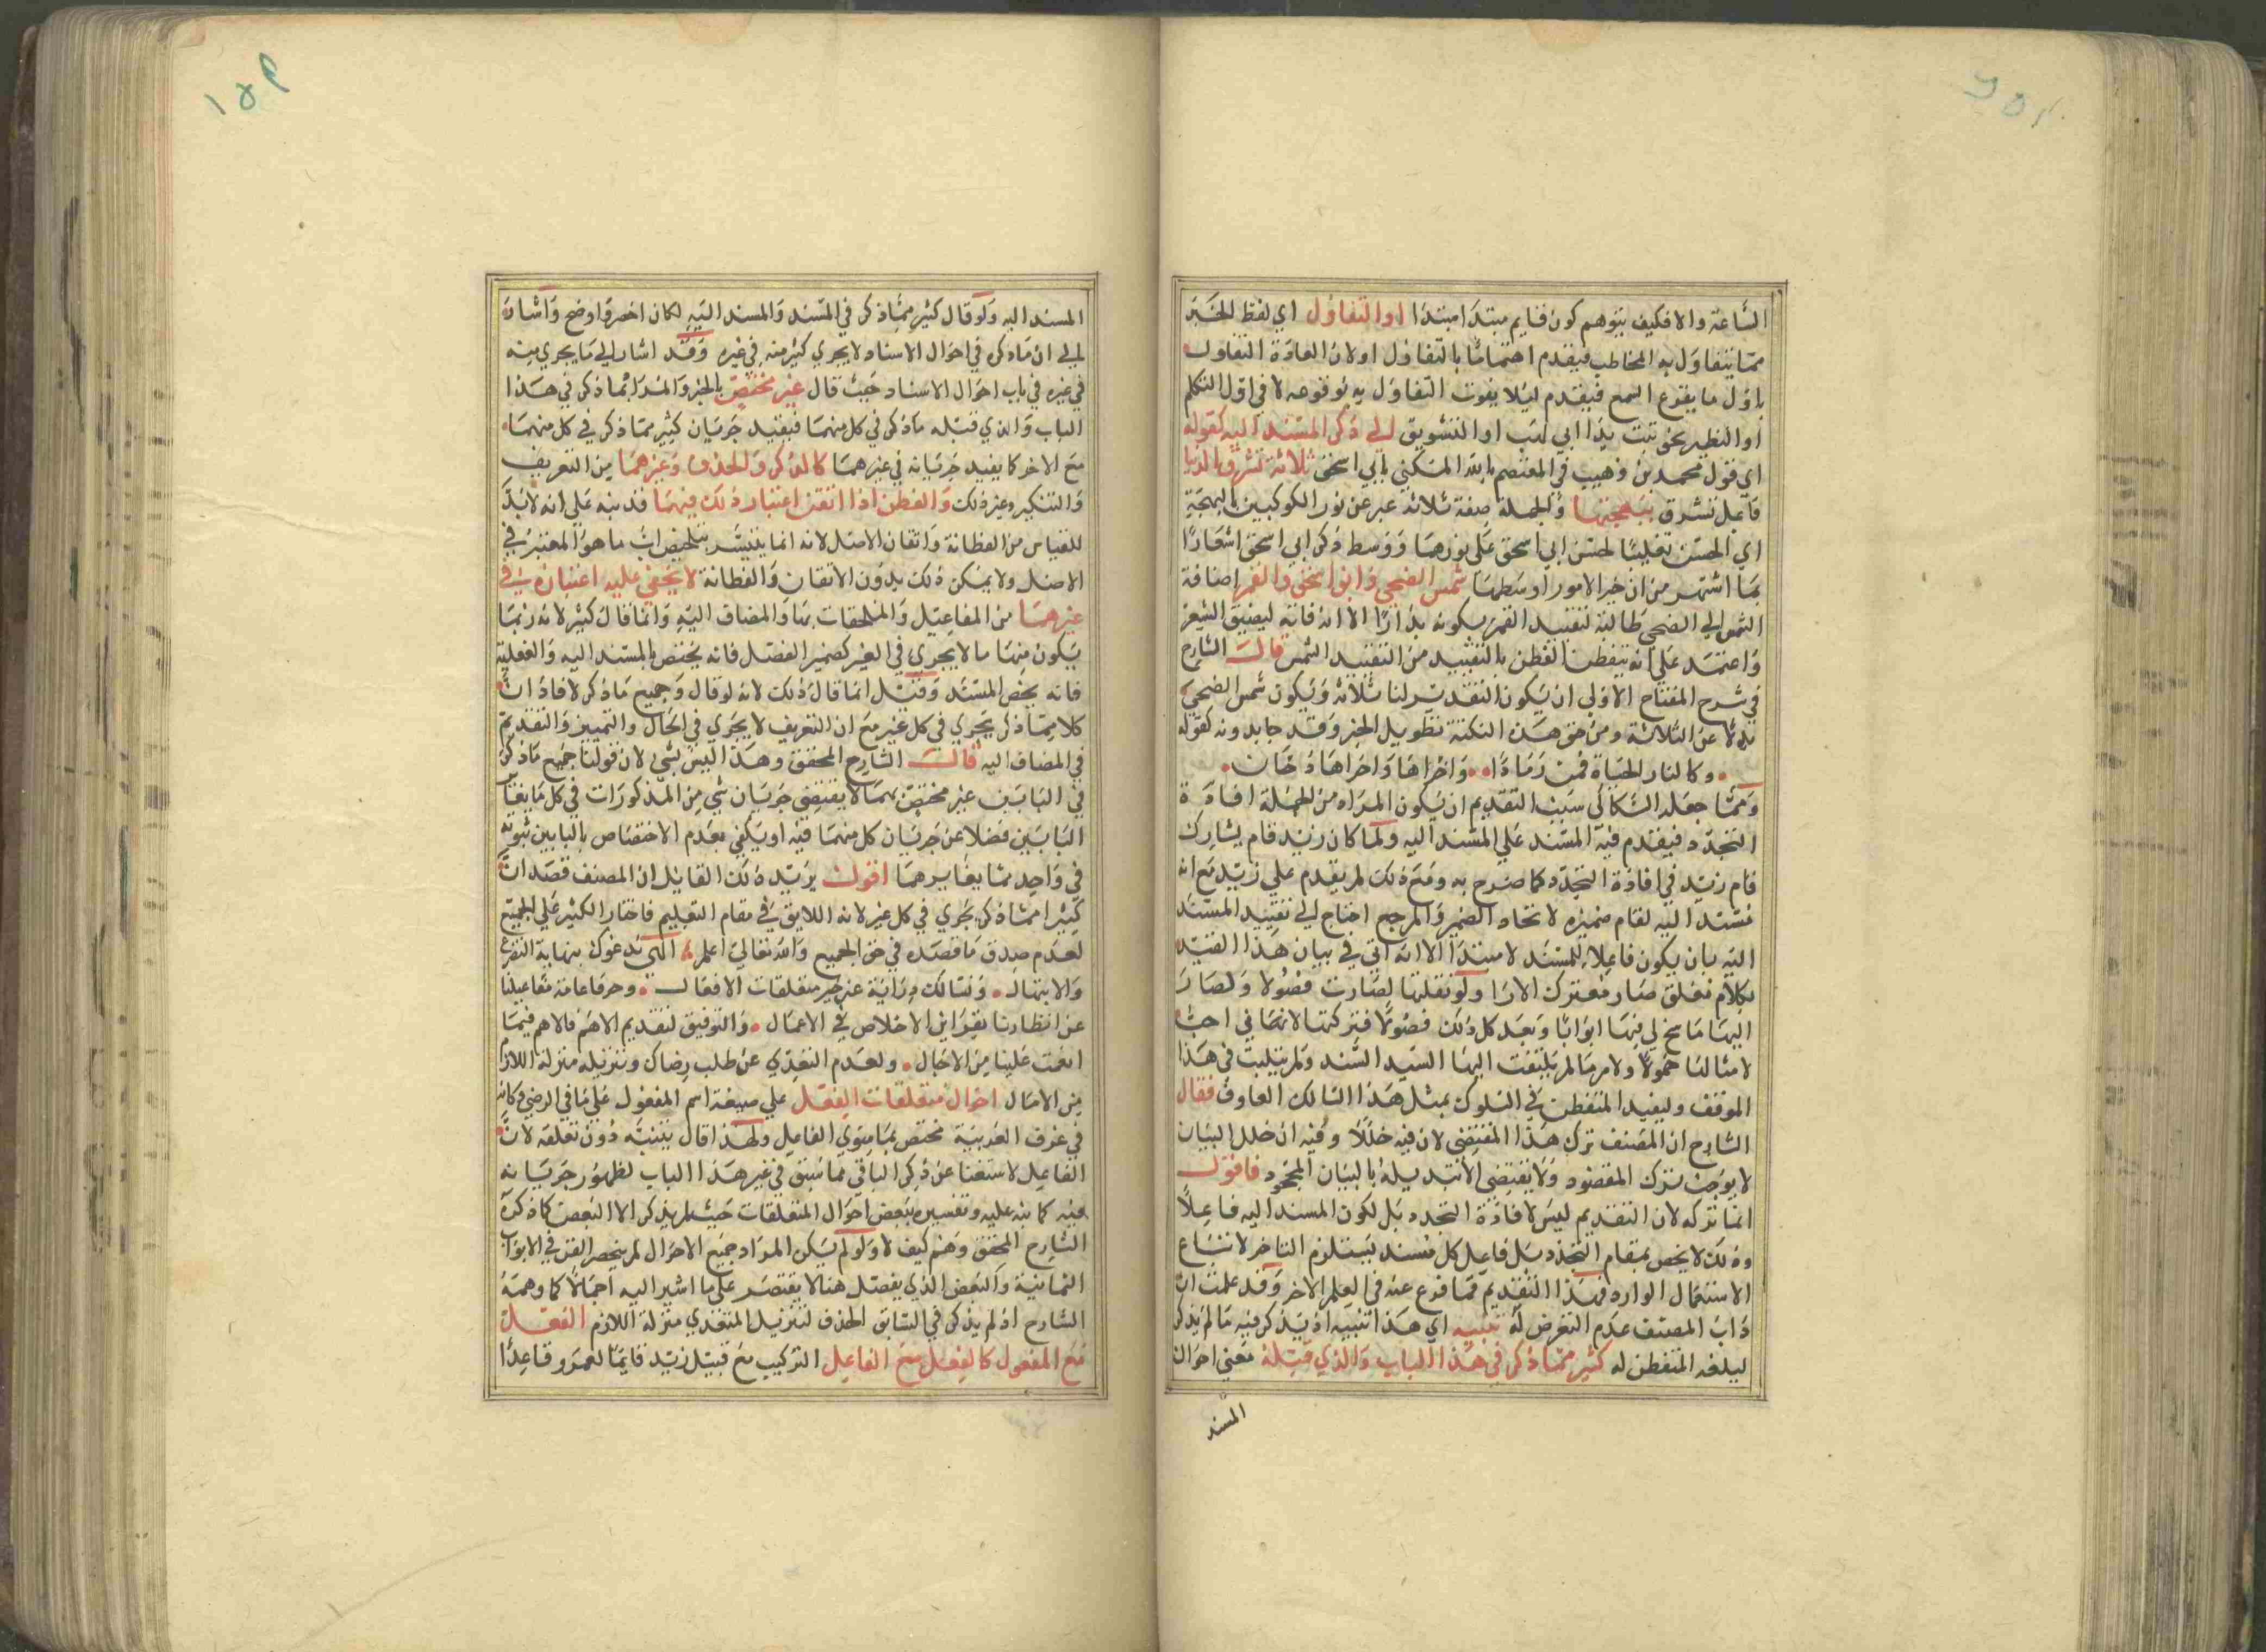 الساعة والا فكيف يتوهم كون قايم مبتدا مبتدا او التفاول اي لفظ الخبر
مما يتفاول به المخاطب فيقدم اهتماما بالتفاول اولان العادة التفاول
باول ما يقرع السمع فيقدم ليلا يفوت التفاول به بوقوعه لا في اول التكلم
او التطير نحو تبت يدا ابي لهب او التشويق الي ذكر المسند اليه كقوله
اي قول محمد بن وهيب في المعتصم بالله المكني بابي اسحق ثلاثة تشرق الدنيا
فاعل تشرق ببهجتها والجملة صفة ثلاثة عبر عن نور الكوكبين بالبهجة
اي الحسن تغليبا لحسن ابي اسحق علي نورهما ووسط ذكر ابي اسحق اشعارا
بما اشتهر من ان خير الامور اوسطها شمس الضحي وابو اسحق والقمر اضافة
الشمس الي الضحي طالبة لتقييد القمر بكونه بدرا الا انه فاته ليضيق الشعر
واعتمد علي انه يتفطن الفطن بالتقييد من التقييد الشمس قال الشارح
في شرح المفتاح الاولي ان يكون التقدير لنا ثلاثة ويكون شمس الضحي
بدلا عن الثلاثة ومن حق هذه النكتة تطويل الخبر وقد جا بدونه كقوله
وكالنار الحياة فمن رمادا واخراها واخراها دخان
ومما جعله السكاكي سبب التقديم ان يكون المراد من الجملة افادة
التجدد فيقدم فيه المسند علي المسند اليه ولما كان زيد قام يشارك
قام زيد في افادة التجدد كما صرح به ومع ذلك لم يقدم علي زيد مع انه
مسند اليه لقام ضميره لاتحاد الضمير والمرجع احتاج الي تقييد المسند
اليه بان يكون فاعلا للمسند لا مبتدا الا انه اتي في بيان هذا القيد
بكلام مغلق صار معترك الارا ولو نقلتها لصارت فضولا ولصار
اليها ما سنح لي فيها ابوابا وبعد كل ذلك فضولا فتركتها لانها في احب
لامثالنا خمولا ولامر ما لم يلتفت اليها السيد السند ولم يتلبث في هذا
الموقف وليفيد المتفطن في السلوك بمثل هذا السالك العارف فقال
الشارح ان المصنف ترك هذا المقتضي لان فيه خللا وفيه ان خلل البيان
لا يوجب ترك المقصود ولا يقتضي الا تبديله بالبيان المجود فاقول
انما تركه لان التقديم ليس لافادة التجدد بل لكون المسند اليه فاعلا
وذلك لا يخص بمقام التجدد بل فاعل كل مسند يستلزم التاخر لاتباع
الاستعمال الوارد فهذا التقديم مما فرع عنه في العلم الاخر وقد علمت ان
داب المصنف عدم التعرض له تنبيه اي هذا تنبيه اذ يذكر فيه ما لم يذكر
ليلغه المتفطن له كثير مما ذكر في هذا الباب والذي قبله معني احوال
المسند
المسند اليه ولو قال كثير مما ذكر في المسند والمسند اليه لكان اخصر واوضح واشار
الي ان ما ذكره في احوال الاسناد لا يجري كثير منه في غيره وقد اشار الي ما يجري منه
في غيره في باب احوال الاسناد حيث قال غير مختص بالخبر والمراد بما ذكر في هذا
الباب والذي قبله ما ذكر في كل منهما فيفيد جريان كثير مما ذكر في كل منهما
مع الاخر كما يفيد جريانه في غيرهما كالذكر والحذف وغيرهما من التعريف
والتنكير وغير ذلك والفطن اذا اتقن اعتبار ذلك فيهما قد نبه علي انه لا بد
للقياس من الفطانة واتقان الاصل لانه انما يتيسر بتلخيص ان ما هو المعتبر في
الاصل ولا يمكن ذلك بدون الاتقان والفطانة لا يخفي عليه اعتباره في
غيرهما من المفاعيل والملحقات بها والمضاف اليه وانما قال كثير لانه ربما
يكون منها ما لا يجري في الغير كضمير الفصل فانه يختص بالمسند اليه والفعلية
فانه يخص المسند وقيل انما قال ذلك لانه لو قال وجميع ما ذكر لافاد ان
كلا مما ذكر يجري في كل غير مع ان التعريف لا يجري في الحال والتمييز والتقديم
في المضاف اليه قال الشارح المحقق وهذا ليس بشي لان قولنا جميع ما ذكر
في البابين غير مختص بهما لا يقتضي جريان شي من المذكورات في كل ما يغاير
البابين فضلا عن جريان كل منهما فيه او يكفي بعدم الاختصاص بالبابين ثبوته
في واحد مما يغايرهما اقول يريد ذلك القايل ان المصنف قصد ان
كثيرا مما ذكر يجري في كل غير لانه اللايق في مقام التعليم فاختار الكثير علي الجميع
لعدم صدق ما قصده في حق الجميع والله تعالي اعلم الهي ندعوك بنهاية التضرع
والابتهال ونسالك وراثية عن خير متعلقات الافعال وحرفا عامة مفاعيلنا
عن انظارنا بقراين الاخلاص في الاعمال والتوفيق لتقديم الاهم فالاهم فيما
انعمت علينا من الاحبال ولعدم التعدي عن طلب رضاك وتنزيله منزلة اللازم
من الامال احوال متعلقات الفعل علي صيغة اسم المفعول علي ما في الرضي وكانه
في عرف العربية مختص بما سوي الفاعل ولهذا قال بينه دون تعلقه لان
الفاعل لاستغنا عن ذكر الباقي مما سبق في غير هذا الباب لظهور جريانه
فيه كما نبه عليه وتفسيره ببعض احوال المتعلقات حيث لم يذكر الا البعض كما ذكره
الشارح المحقق وهم كيف لا ولو لم يكن المراد جميع الاحوال لم ينحصر الفن في الابواب
الثمانية والبعض الذي يفصل هنا لا يقتصر علي ما اشير اليه اجمالا كما وهمه
الشارح اذ لم يذكر في السابق الحذف لتنزيل المتعدي منزلة اللازم الفعل
مع المفعول كالفعل مع الفاعل التركيب مع قبيل زيد قايما لعمرو قاعدا